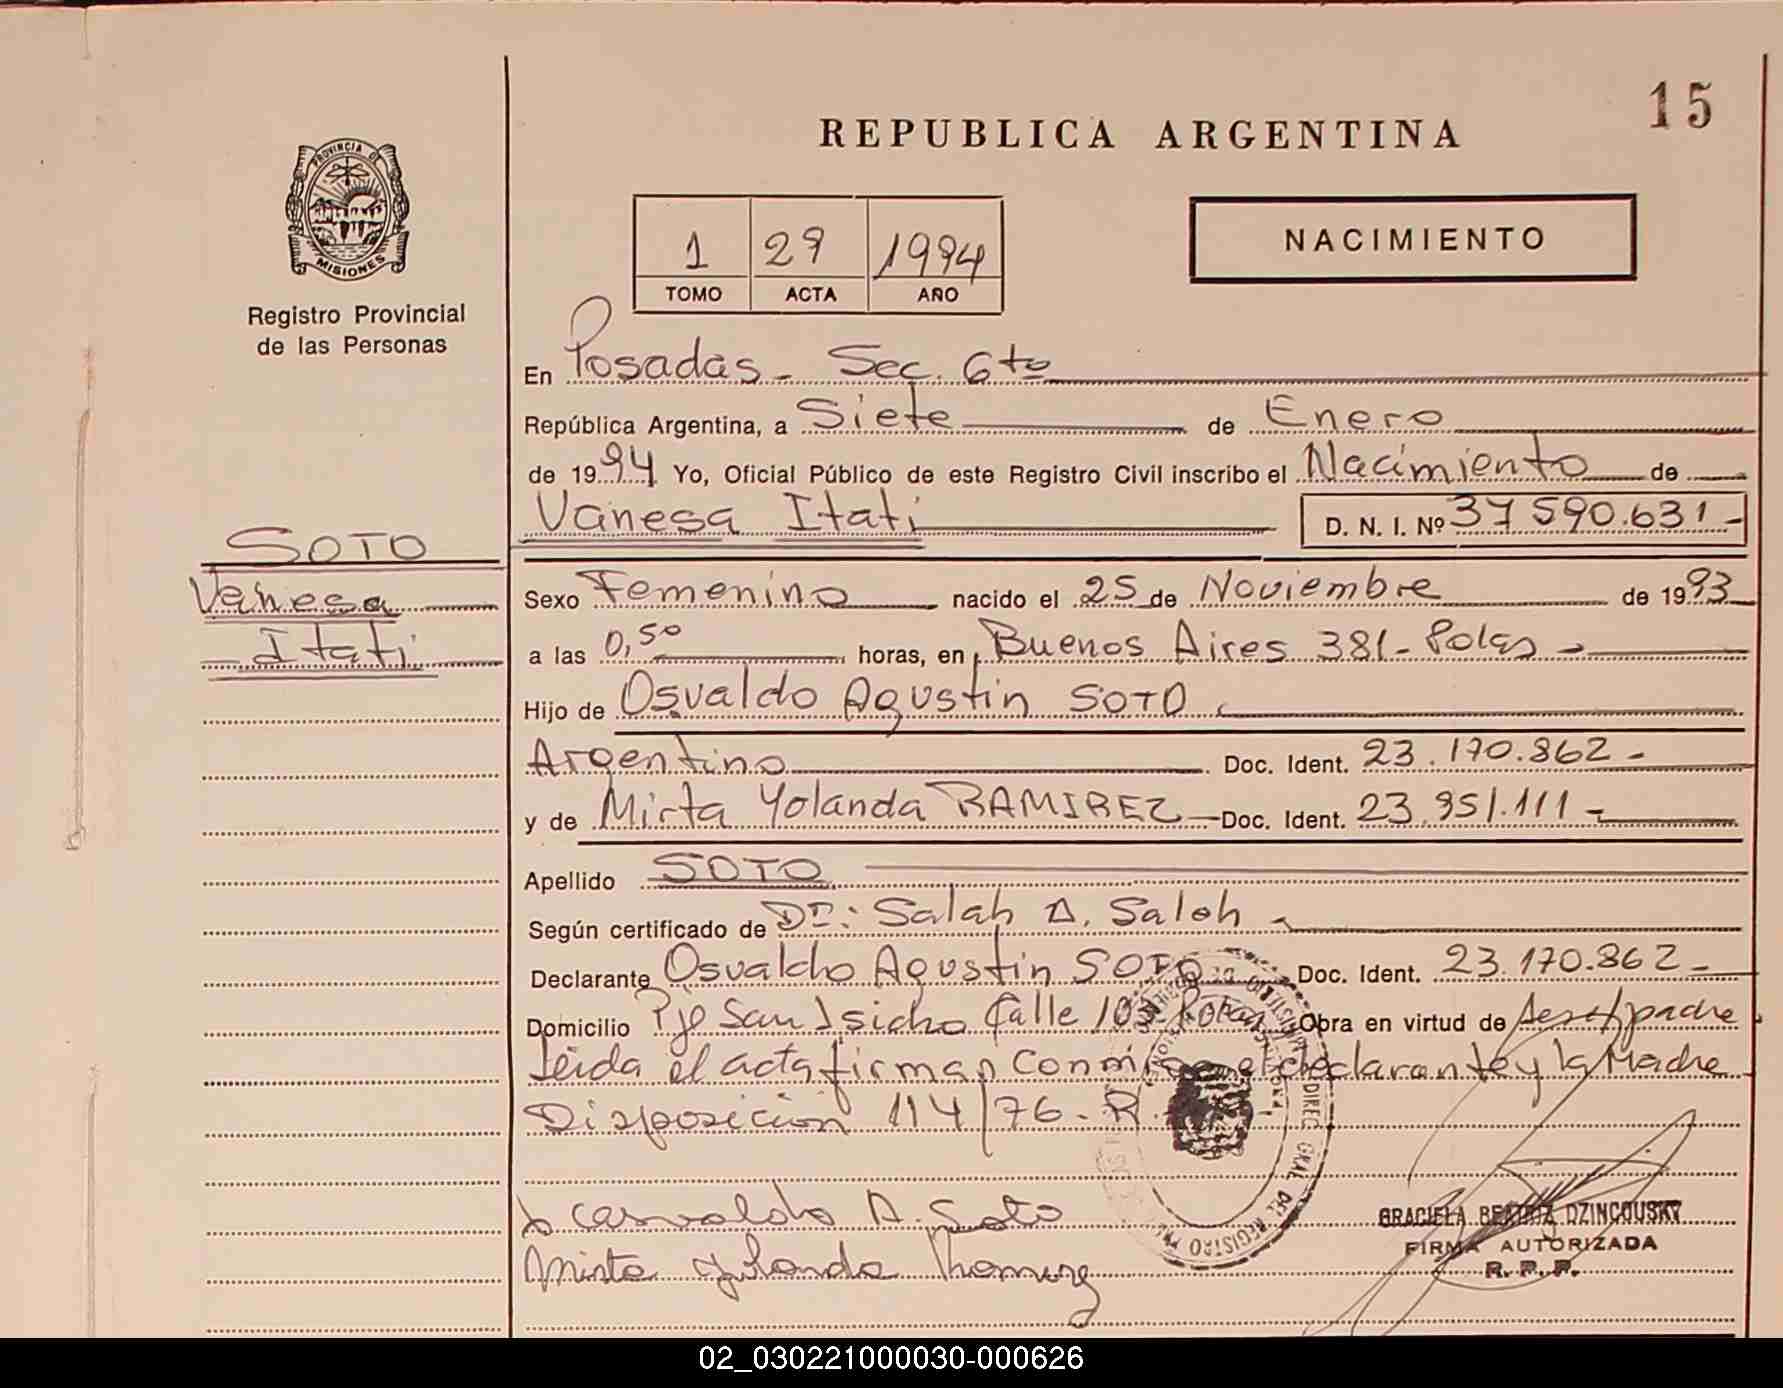 15
REPUBLICA ARGENTINA
PROVINCIA DE
MISIONES
Registro Provincial
de las Personas
1 29 1994
TOMO ACTA AÑO
NACIMIENTO
En Posadas - Sec. 6to
República Argentina, a Siete de Enero
de 1994 Yo, Oficial Público de este Registro Civil inscribo el Nacimiento de
Vanesa Itati D. N. I. Nº 37 590.631 -
SOTO
Vanesa
Itati
Sexo Femenino nacido el 25 de Noviembre de 1993
a las 0,50 horas, en Buenos Aires 381 - Pdas -
Hijo de Osvaldo Agustin SOTO
Argentino Doc. Ident. 23.170.862 -
y de Mirta Yolanda RAMIREZ Doc. Ident. 23.951.111 -
Apellido SOTO
Según certificado de Dr: Salah A. Saleh
Declarante Osvaldo Agustin SOTO Doc. Ident. 23.170.862 -
Domicilio Pje San Isidro Calle Obra en virtud de Ser el padre
Leida el acta firman conmigo el declarante y la Madre
Disposicion 114/76. R.
DIREC. GRAL. DEL REGISTRO
Osvaldo A. Soto
Mirta Yolanda Ramirez
GRACIELA BEATRIZ DZINCOUSKY
FIRMA AUTORIZADA
R. P. P.
02_030221000030-000626